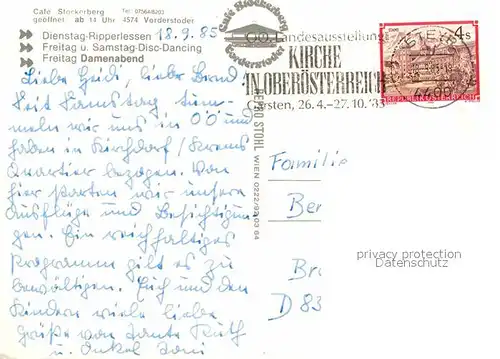 Café Stockerberg Tel. 07564/8203
geöffnet ab 14 Uhr 4574 Vorderstoder
Dienstag-Ripperlessen 18.9.85
Freitag u. Samstag-Disc-Dancing
Freitag Damenabend
Liebe Heidi, liebe Bernd
Seit Samstag tum-
meln wir uns in OÖ und
haben in Kirchdorf/Krems
Quartier bezogen. Von
hier starten wir unsere
Ausflüge und Besichtigun
gen. Ein reichhaltiges
Programm gilt es zu
bewältigen. Euch und den
Kindern viele liebe
Grüße von Tante Ruth
u. Onkel Toni
Café Stockerberg
Vorderstoder
Landesausstellung
KIRCHE
IN OBERÖSTERREICH
Garsten, 26.4.-27.10.'85
STEYR
4400
4 S
REPUBLIK ÖSTERREICH
STOHL WIEN 0222/93 03 64
Familie
Ber
Br
D 83
privacy protection
Datenschutz